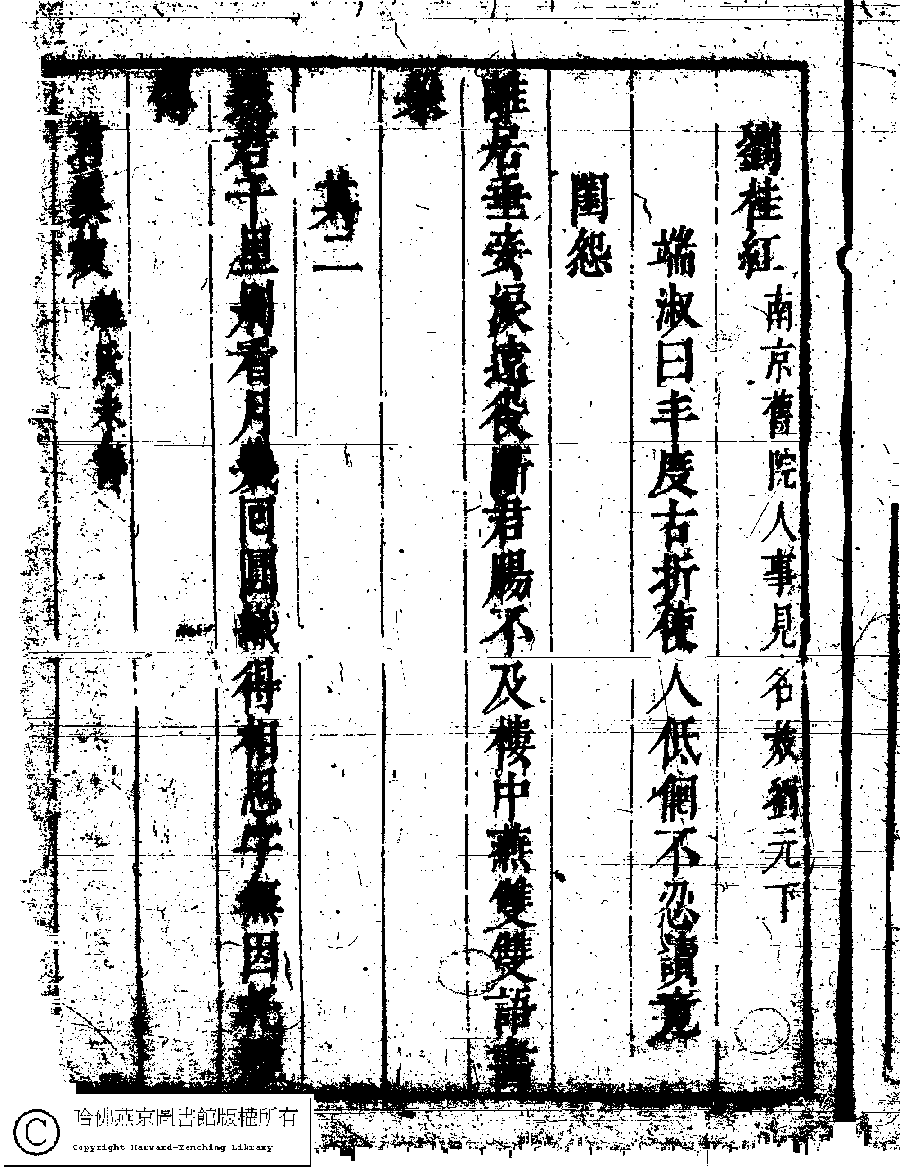 劉桂紅 南京舊院人事見名妓劉元下
端淑曰丰度古折使人低徊不忍讀竟
閨怨
離居垂妾淚遠役斷君腸不及樓中燕雙雙語
梁
其二
君千里別看月幾回圓織得相思字無因
哈佛燕京圖書館版權所有
Copyright Harvard-Yenching Library